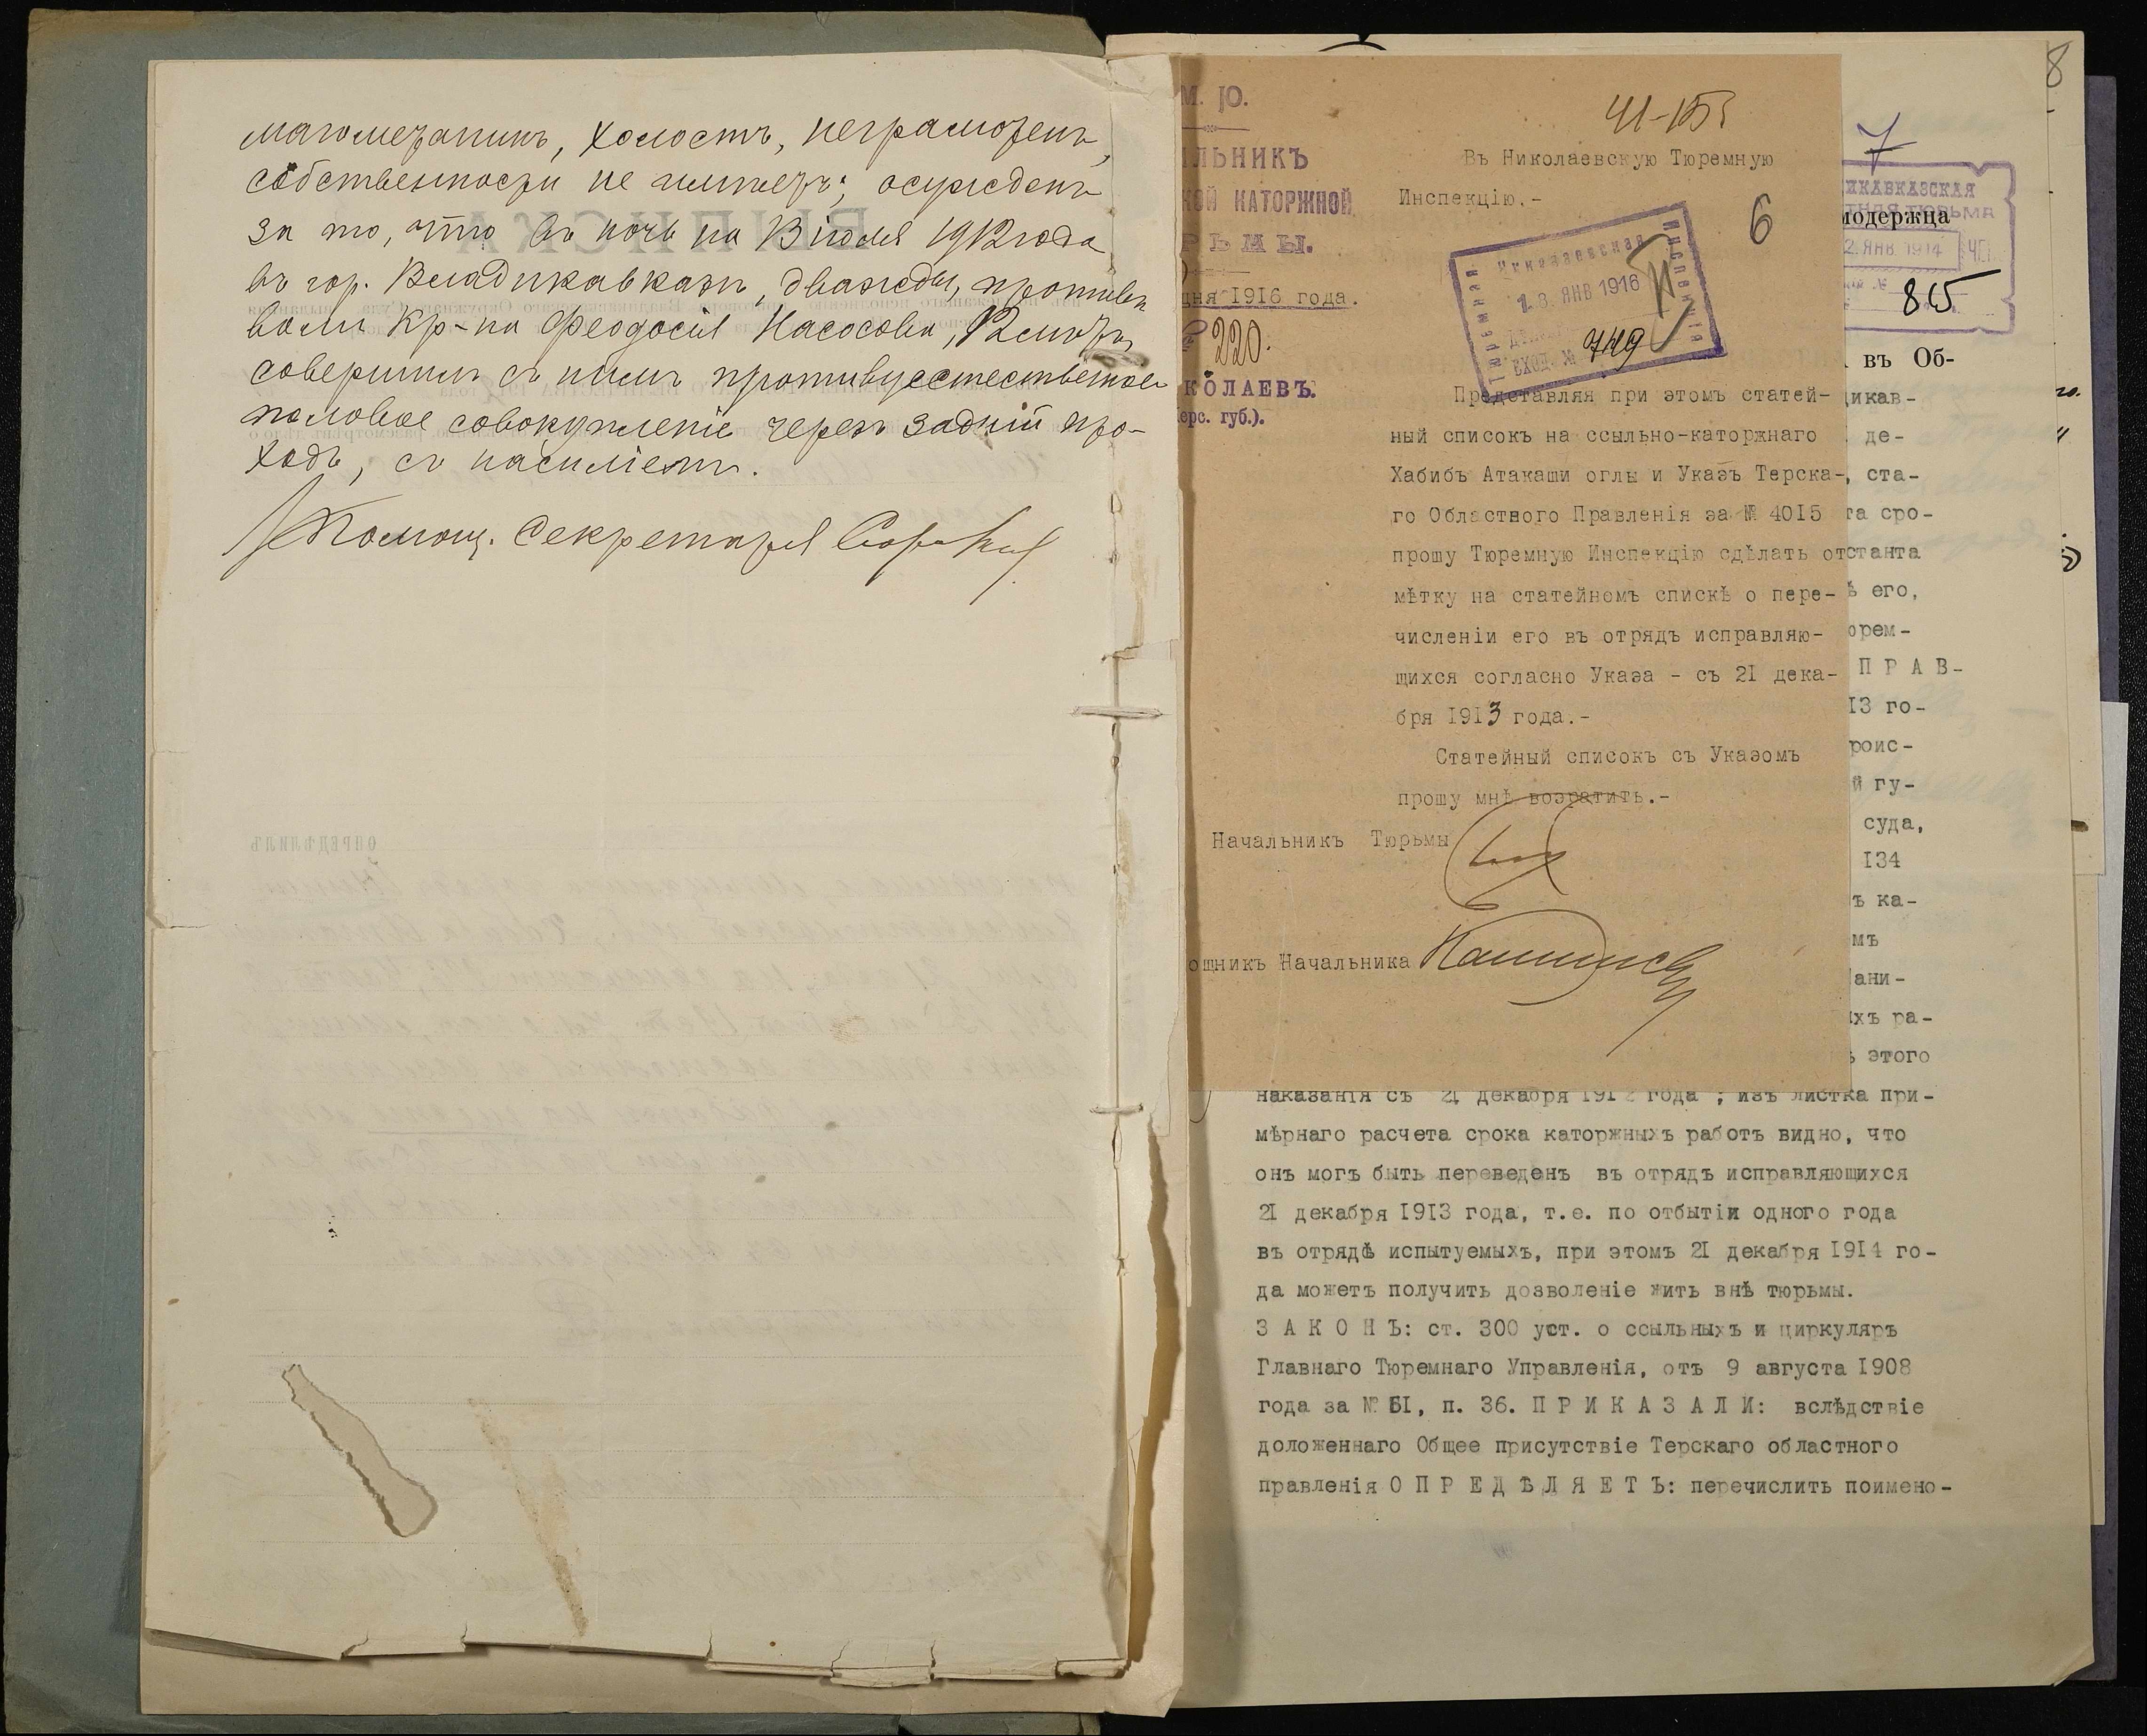 магометанинъ, холостъ, неграмотенъ,
собственности не имѣетъ; осужденъ
за то, что въ ночь на 13 іюля 1912 года
въ гор. Владикавказѣ, дважды, противъ
воли кр-на Феодосія Насосова, 12 лѣтъ,
совершилъ съ нимъ противуестественное
половое совокупленіе черезъ задній про-
ходъ, съ насиліемъ.
Помощ. Секретаря
М. Ю.
ЛЬНИКЪ
КОЙ КАТОРЖНОЙ
РЬМЫ.
дня 1916 года.
№ 220.
КОЛАЕВЪ.
ерс. губ.).
Въ Николаевскую Тюремную
Инспекцію.-
6
Николаевская
Тюремная
Инспекція
ЯНВ 1916
ВХОД. № 749
Представляя при этомъ статей-
ный списокъ на ссыльно-каторжнаго
Хабибъ Атакаши оглы и Указъ Терска-
го Областного Правленія за № 4015
прошу Тюремную Инспекцію сдѣлать от
мѣтку на статейномъ спискѣ о пере-
численіи его въ отрядъ исправляю-
щихся согласно Указа - съ 21 дека-
бря 1913 года.-
Статейный списокъ съ Указомъ
прошу мнѣ возратить.-
Начальникъ Тюрьмы
ощникъ Начальника
8
7
ИКАВКАЗСКАЯ
ТНАЯ ТЮРЬМА
модержца
2. ЯНВ 1914
815
въ Об-
дикав-
де-
, ста-
та сро-
станта
ѣ его,
юрем-
П Р А В-
13 го-
роис-
й гу-
суда,
134
ъ ка-
мъ
ани-
ихъ ра-
этого
наказанія съ 21 декабря 1912 года ; изъ листка при-
мѣрнаго расчета срока каторжныхъ работъ видно, что
онъ могъ быть переведенъ въ отрядъ исправляющихся
21 декабря 1913 года, т.е. по отбытіи одного года
въ отрядѣ испытуемыхъ, при этомъ 21 декабря 1914 го-
да можетъ получить дозволеніе жить внѣ тюрьмы.
З А К О Н Ъ: ст. 300 уст. о ссыльныхъ и циркуляръ
Главнаго Тюремнаго Управленія, отъ 9 августа 1908
года за № 51, п. 36. П Р И К А З А Л И: вслѣдствіе
доложеннаго Общее присутствіе Терскаго областного
правленія О П Р Е Д Ѣ Л Я Е Т Ъ: перечислить поимено-